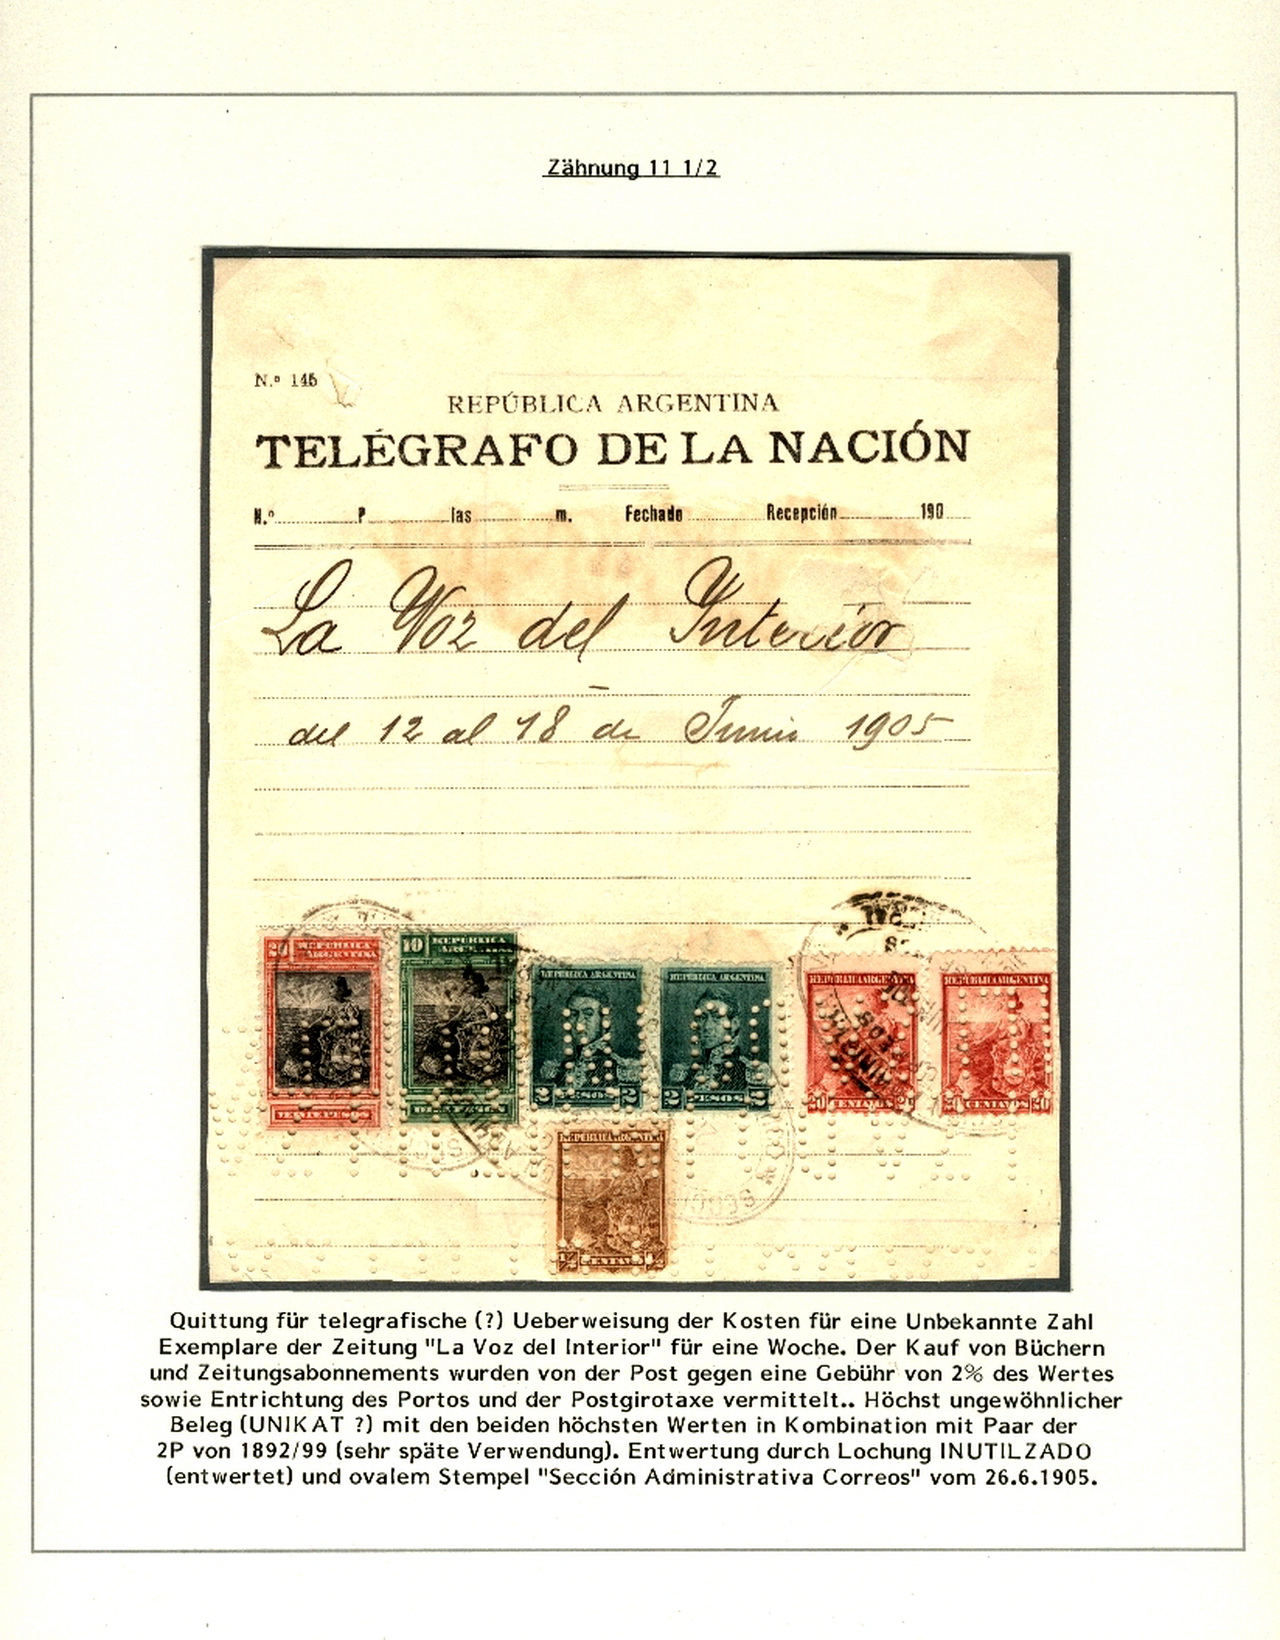 Zähnung 11 1/2
N.º 145
REPÚBLICA ARGENTINA
TELÉGRAFO DE LA NACIÓN
N.º P las m. Fechado Recepción 190
La Voz del Interior
del 12 al 18 de Junio 1905
20 REPUBLICA ARGENTINA 10 REPUBLICA ARGENTINA
REPUBLICA ARGENTINA REPUBLICA ARGENTINA REPUBLICA ARGENTINA REPUBLICA ARGENTINA
VEINTE PESOS
2 PESOS 2 2 PESOS 2 20 CENTAVOS 20 20 CENTAVOS 20
REPUBLICA ARGENTINA
1/2 CENTAVO 1/2
Quittung für telegrafische (?) Ueberweisung der Kosten für eine Unbekannte Zahl
Exemplare der Zeitung "La Voz del Interior" für eine Woche. Der Kauf von Büchern
und Zeitungsabonnements wurden von der Post gegen eine Gebühr von 2% des Wertes
sowie Entrichtung des Portos und der Postgirotaxe vermittelt.. Höchst ungewöhnlicher
Beleg (UNIKAT ?) mit den beiden höchsten Werten in Kombination mit Paar der
2P von 1892/99 (sehr späte Verwendung). Entwertung durch Lochung INUTILZADO
(entwertet) und ovalem Stempel "Sección Administrativa Correos" vom 26.6.1905.